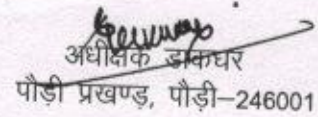 अधीक्षक डाकघर
पौड़ी प्रखण्ड, पौड़ी–246001